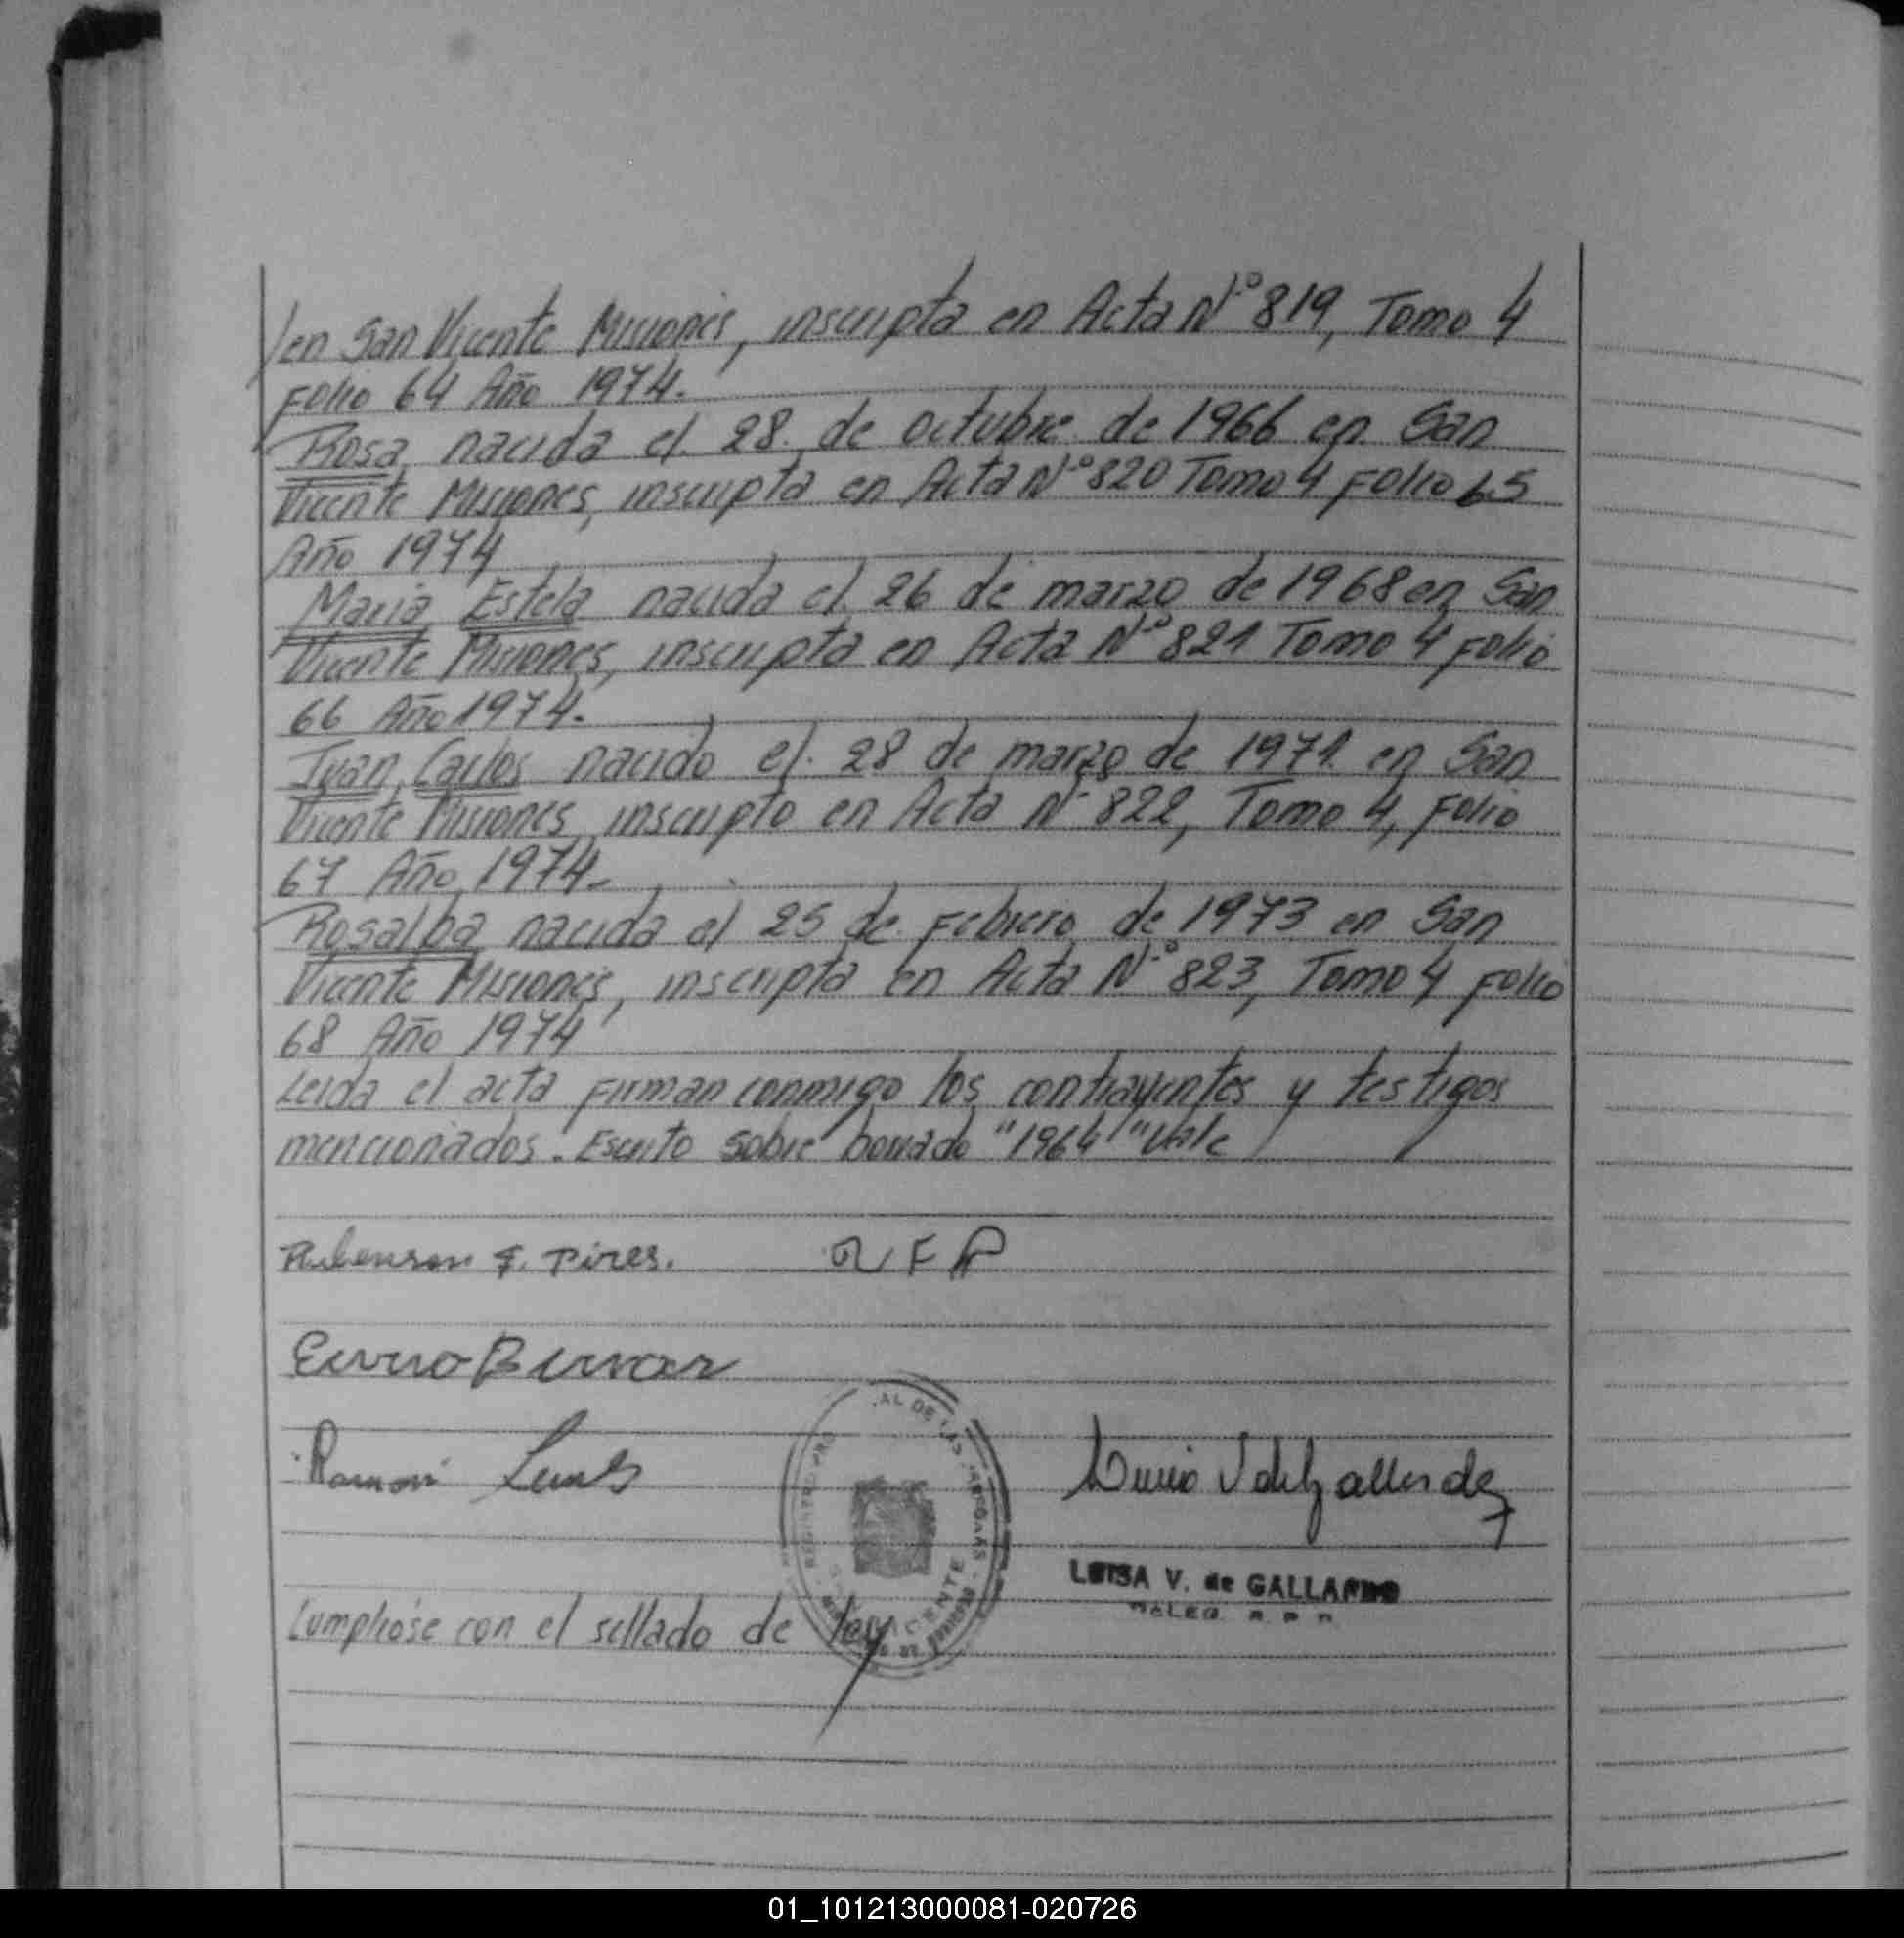 /en San Vicente Misiones, inscripta en Acta N.º 819, Tomo 4
Folio 64 Año 1974.
Rosa, nacida el. 28. de octubre de 1966 en San
Vicente Misiones, inscripta en Acta N.º 820 Tomo 4 Folio 65
Año 1974
Maria Estela nacida el. 26 de marzo de 1968 en San
Vicente Misiones, inscripta en Acta N.º 821 Tomo 4 Folio
66 Año 1974.
Juan Carlos nacido el. 28 de marzo de 1971 en San
Vicente Misiones inscripto en Acta Nº 822, Tomo 4, Folio
67 Año 1974.
Rosalba nacida el 25 de Febrero de 1973 en San
Vicente Misiones, inscripta en Acta N.º 823, Tomo 4 Folio
68 Año 1974
Leida el acta firman conmigo los contrayentes y testigos
mencionados. Escrito sobre borrado "1964" Vale
Rubenson F. Pires. R F P
Ramon
AL DE LAS
VICENTE
LUISA V. de GALLARDO
DELEG. R. P. P.
Cumplióse con el sellado de ley
01_101213000081-020726